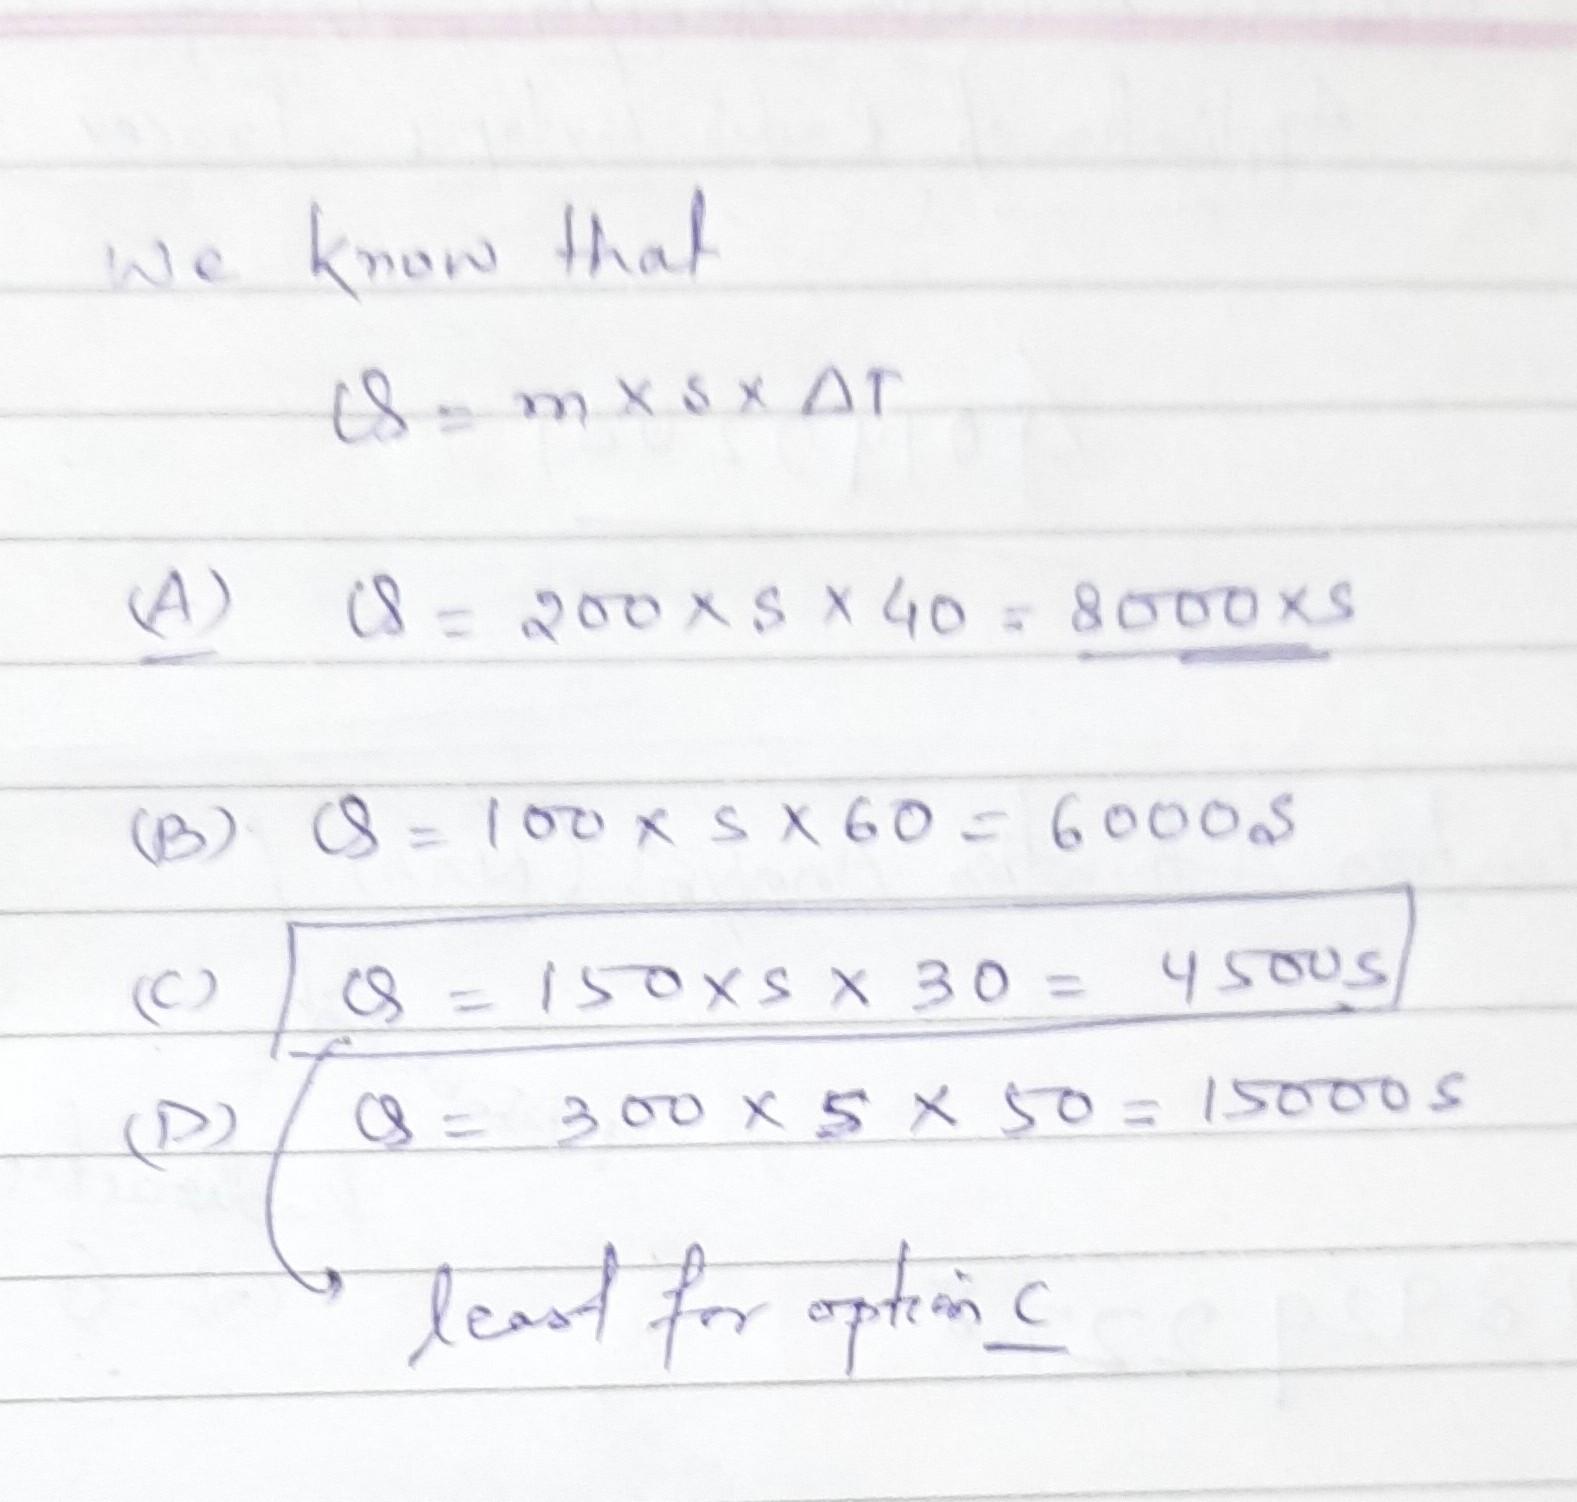 we know that
Q = m x s x ΔT
(A) Q = 200 x s x 40 = 8000 x s
(B) Q = 100 x s x 60 = 6000s
(C) Q = 150 x s x 30 = 4500s
(D) Q = 300 x s x 50 = 15000s
least for option C